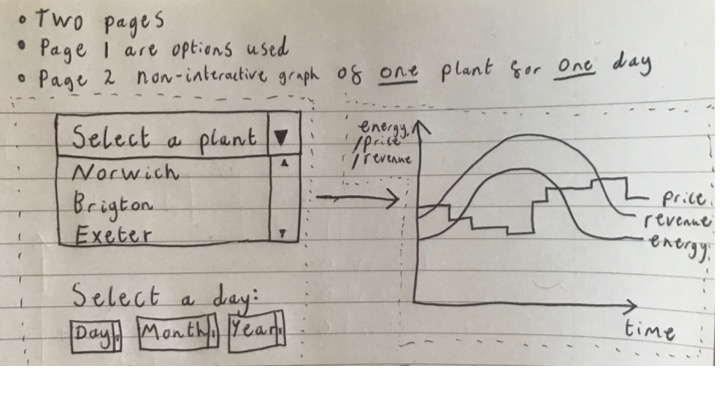 • Two pages
• Page 1 are options used
• Page 2 non-interactive graph of one plant for one day
Select a plant
Norwich
Brigton
Exeter
Select a day:
Day
Month
Year
energy
/price
/revenue
price
revenue
energy
time